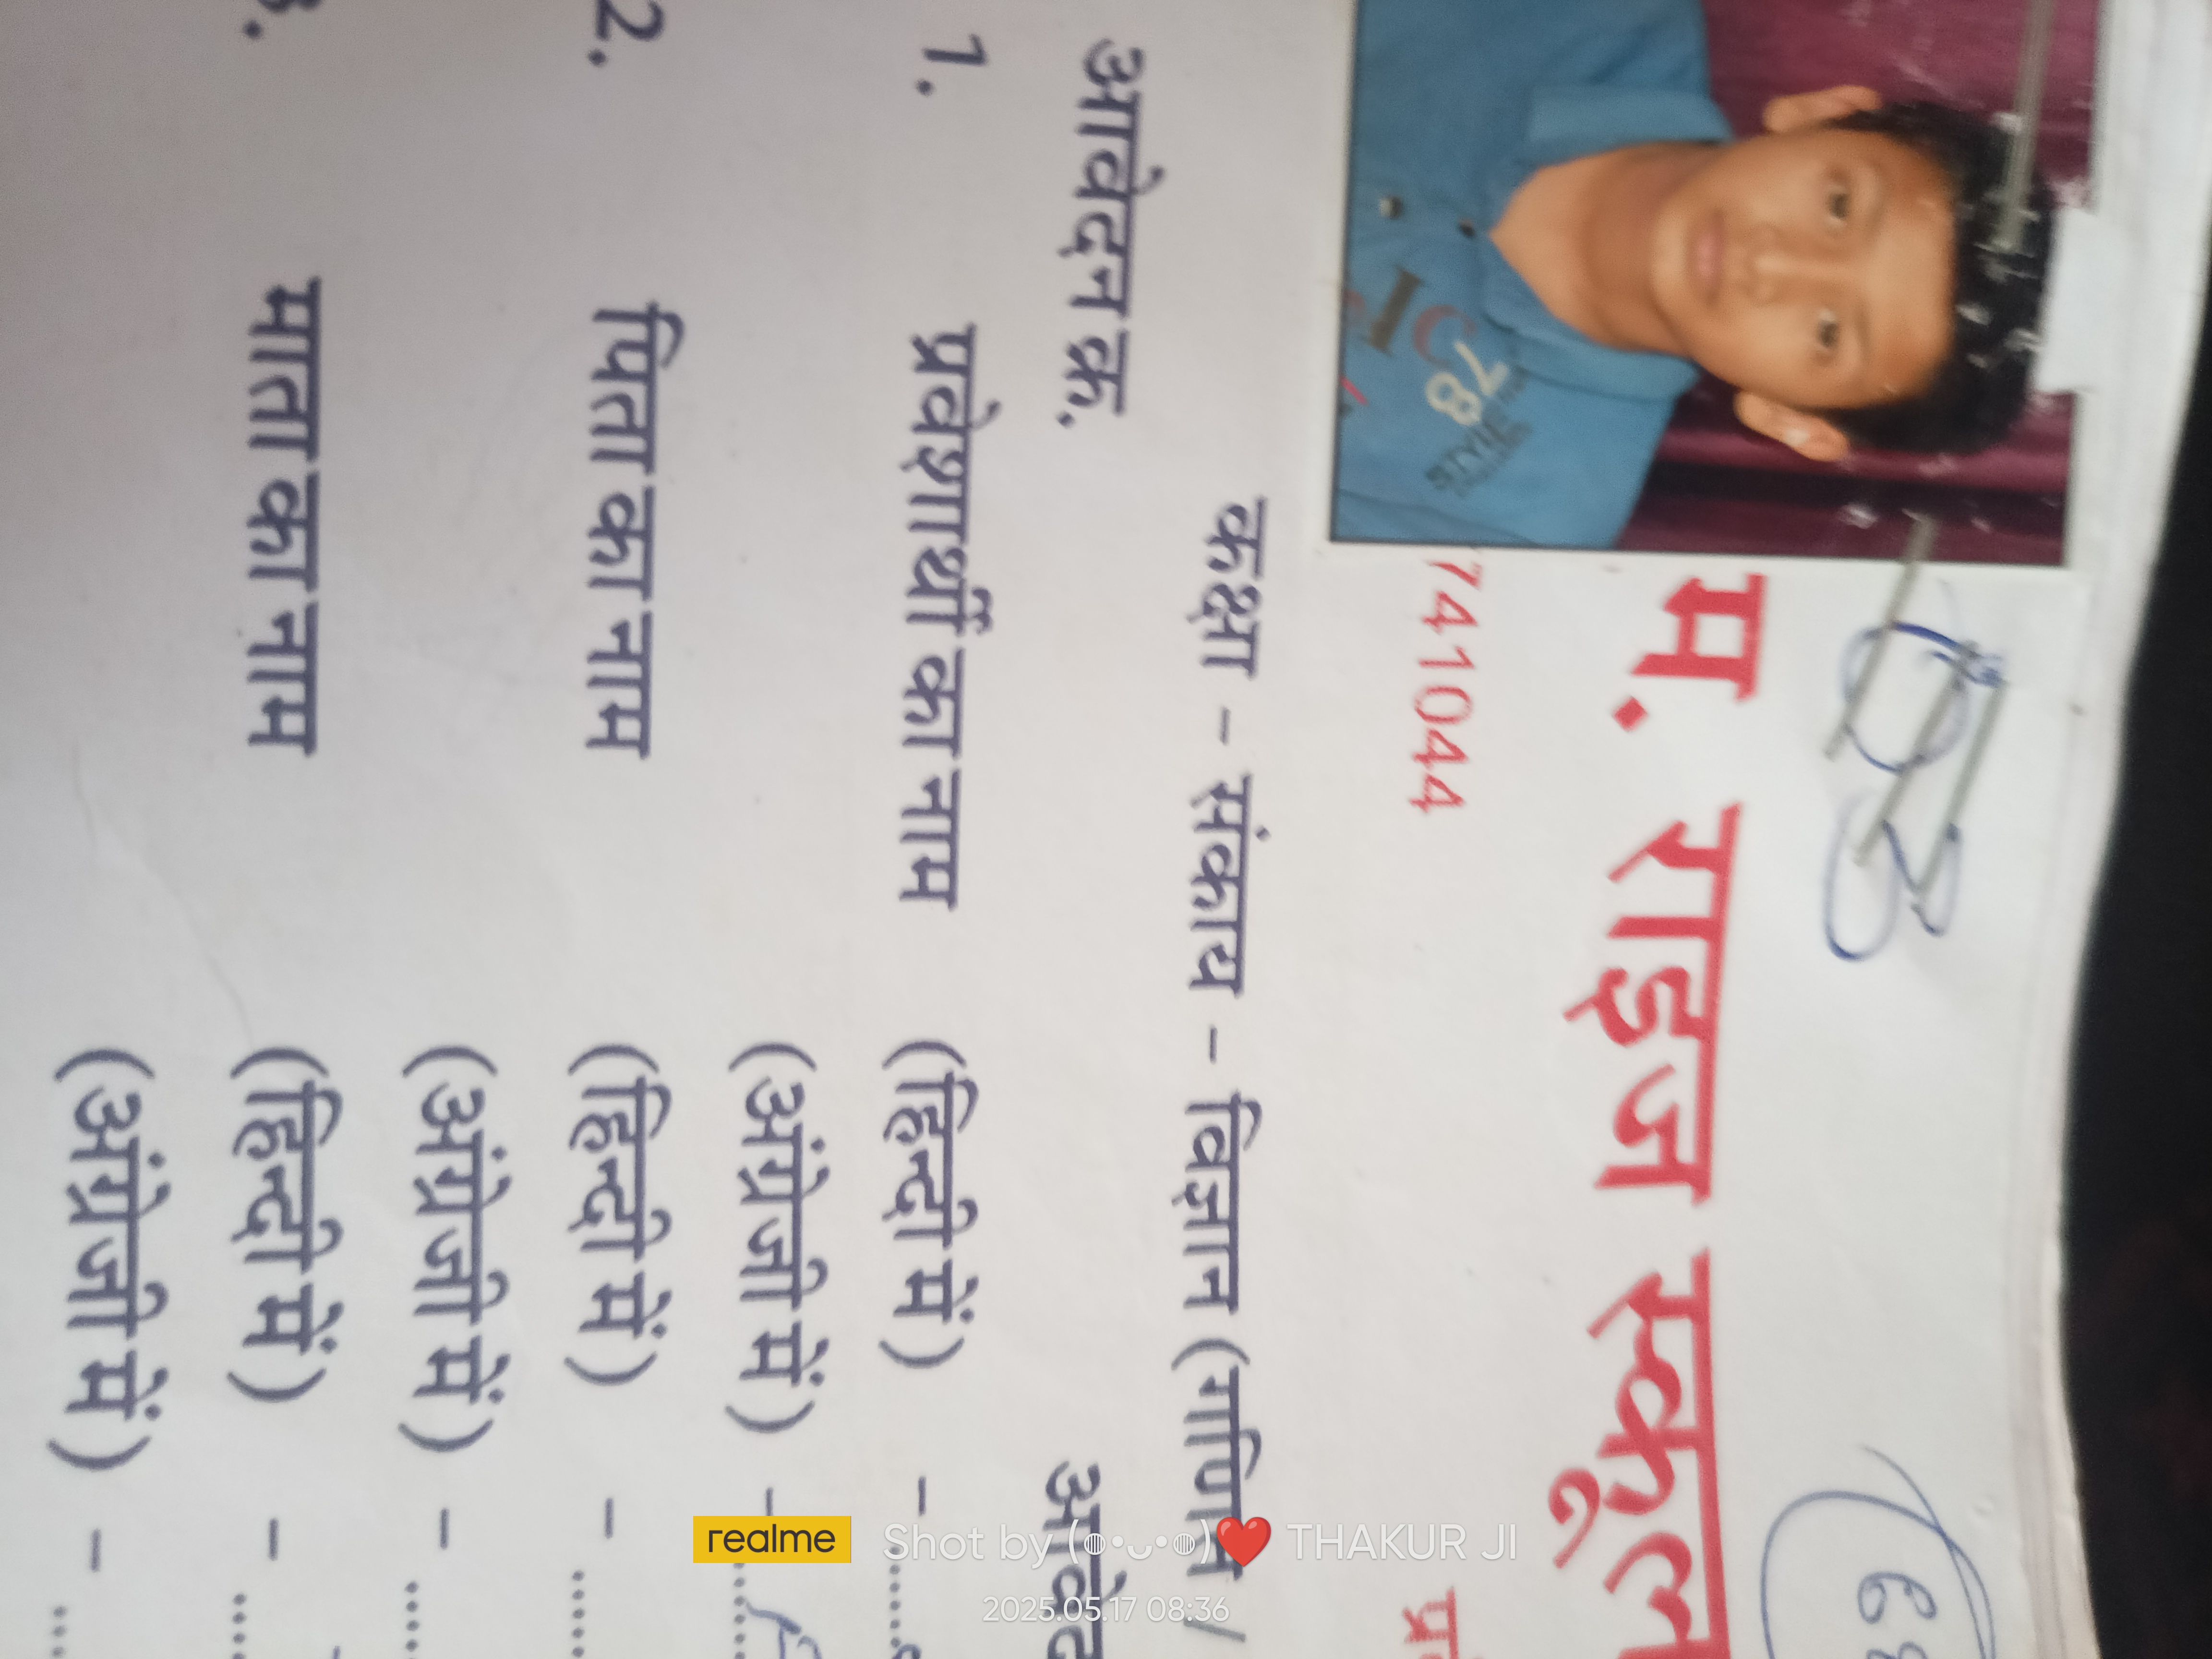 म. राइज स्कूल
741044
कक्षा - संकाय - विज्ञान (गणित /
आवेदन क्र.
1. प्रवेशार्थी का नाम (हिन्दी में) -
(अंग्रेजी में) -
2. पिता का नाम (हिन्दी में) -
(अंग्रेजी में) -
3. माता का नाम (हिन्दी में) -
(अंग्रेजी में) -
78
STYLE
realme Shot by (◍•ᴗ•◍)❤️ THAKUR JI
2025.05.17 08:36